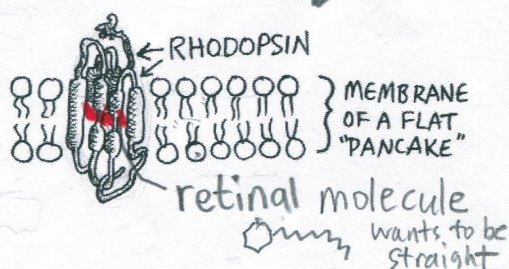 RHODOPSIN
MEMBRANE
OF A FLAT
"PANCAKE"
retinal molecule
wants to be
straight